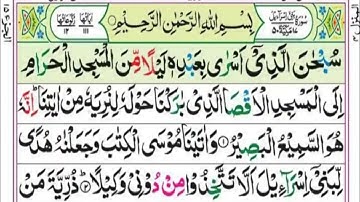 بِسْمِ اللّٰهِ الرَّحْمٰنِ الرَّحِيْمِ
سُبْحٰنَ الَّذِىْٓ اَسْرٰى بِعَبْدِهٖ لَيْلًا مِّنَ الْمَسْجِدِ الْحَرَامِ
اِلَى الْمَسْجِدِ الْاَقْصَا الَّذِىْ بٰرَكْنَا حَوْلَهٗ لِنُرِيَهٗ مِنْ اٰيٰتِنَا ؕ اِنَّهٗ
هُوَ السَّمِيْعُ الْبَصِيْرُ ۝۱ وَاٰتَيْنَا مُوْسَى الْكِتٰبَ وَجَعَلْنٰهُ هُدًى
لِّبَنِىْٓ اِسْرَآءِيْلَ اَلَّا تَتَّخِذُوْا مِنْ دُوْنِىْ وَكِيْلًا ۝۲ ذُرِّيَّةَ مَنْ